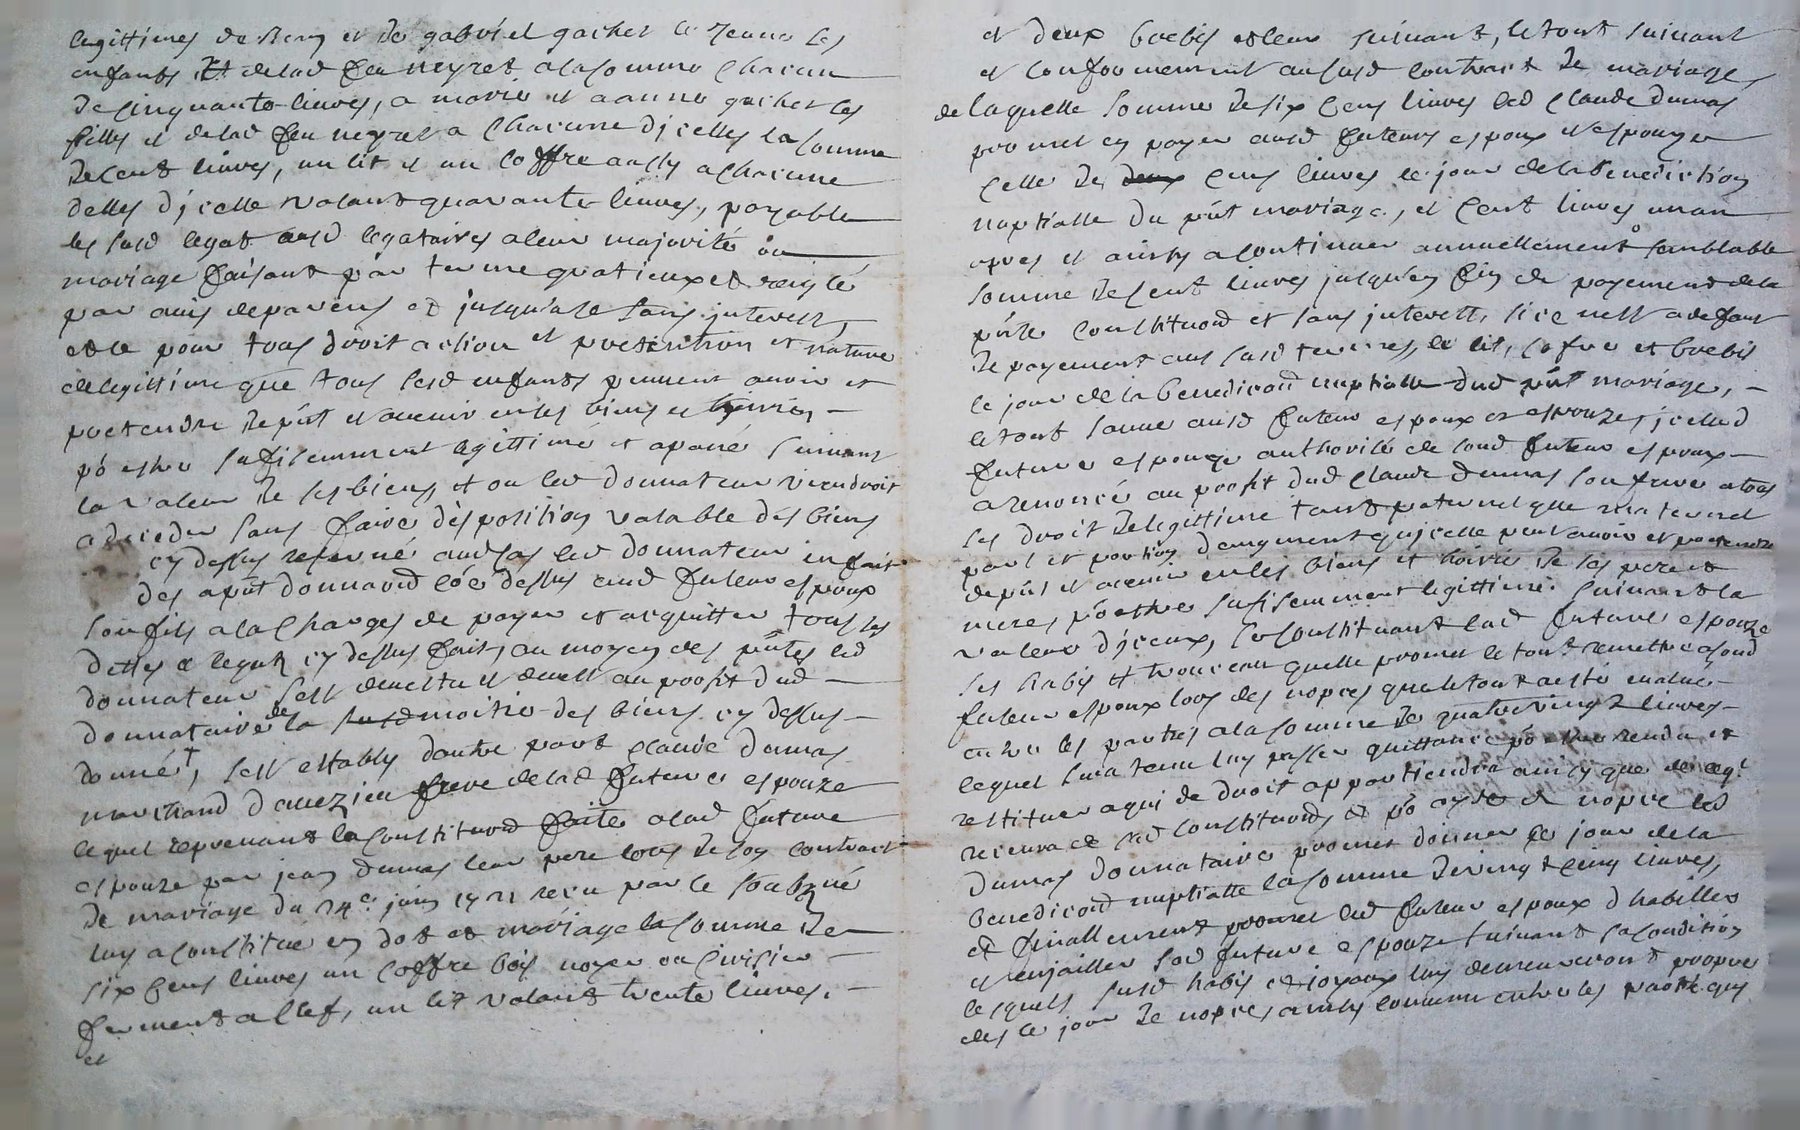 legittimes de Remy et de gabriel gacher le Jeune ses
enfants Et delad feu neyret alasomme Chacun
de cinquante livres, a marie et a anne gacher ses
filles et delad feu neyret a Chacune dicelles la somme
de cent livres, un lit et un coffre aussy a chacune
delles dicelle valant quarante livres, payable
les susd legat ausd legataires a leur majorité ou
mariage faisant par terme gratieux et reiglé
par avis de parens et jusqu'ale sans jnterest,
et ce pour tous droit action et pretention et nature
de legittime que tous sesd enfants peuvent avoir et
pretendre de pnt et avenir en ses biens et hoirie,
po estre sufisemment legittimé et apané suivant
la valeur de ses biens, et ou led donnateur viendroit
a deceder sans faire disposition valable des biens
cy dessus reservé audsas led donnateur en fait
des apnt donnaond coe dessus aud futeur espoux
son fils ala charges de payer et acquitter tous les
dettes & legatz cy dessus fait, au moyen des pntes led
donnateur sest demetu et demet au profit dud
donnataire de la susd moitie des biens cy dessus
donné +, sest estably dautre part claude dumas
marchand dauezieu frere delad future espouze
lequel reprenant la constituond faite alad future
espouze par jean dumas leur pere lors de son contract
de mariage du 24e juin 1721 receu par le soubzné
luy a constitué en dot et mariage la somme de
six cens livres un coffre bois noyer ou cerisier
fermant a clef, un lit valant trente livres,
et
et deux brebis et leur suivant, le tout suivant
et conformement aususd contract de mariage,
de laquelle somme de six cens livres led claude dumas
promet en payer ausd futeurs espoux et espouze
celle de deux cens livres le jour de la benediction
nuptialle du pnt mariage, et cent livres un an
apres et ainsy a continuer annuellement semblable
somme de cent livres jusqu'en fin de payement de la
pnte constituond et sans jnterest, si ce nest a defaut
de payement aus susd termes, le lit, cofre et brebis
le jour de la benediction nuptialle dud pnt mariage,
le tout sauve ausd futeur espoux et espouze, jcelad
future espouze authorisé de soud futeur espoux
a renoncé au profit dud claude dumas son frere a tous
ses droit de legittime tant paternel que maternel
part et portion daugment qu jcelle peut avoir et pretendre
de pnt et avenir en les biens et hoirie de ses pere et
mere, po estre sufisemment legittimé suivant la
valeur djceux, se constituant lad future espouze
ses habis et trousseau quelle promet le tout remettre asond
futeur espoux lors des nopces que le tout a esté evalué
entre les parties ala somme de quatre vingt livres
lequel sera tenu luy passer quittance po estre rendu et
restituer a qui de droit appartiendra ainsy que de ce quil
recevra de sad constituond, et po ayde de nopce led
dumas donnataire promet donner le jour de la
benediction nuptialle la somme de vingt cinq livres,
et finallement promet led futeur espoux dhabiller
et enjailler sad future espouze suivant sa condition
lesquels susd habis et joyaux luy demeureront propre
des le jour de nopces, ainsy convenu entre les partie qui